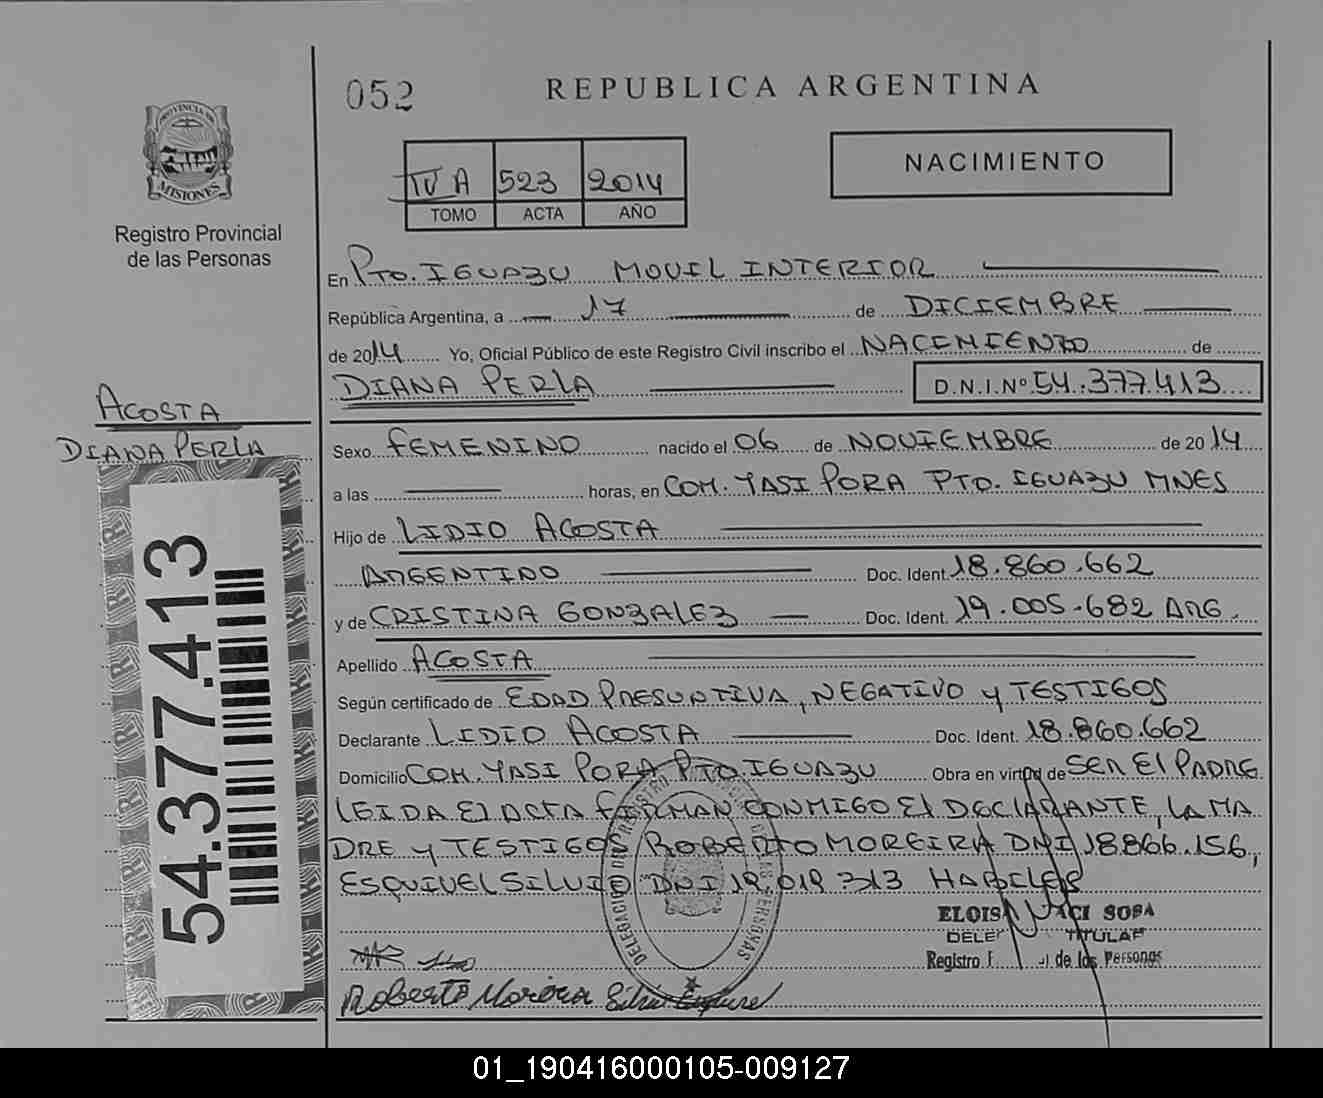 052
REPUBLICA ARGENTINA
PROVINCIA DE
MISIONES
Registro Provincial
de las Personas
IV A 523 2014
TOMO ACTA AÑO
NACIMIENTO
En PTO. IGUAZU MOVIL INTERIOR
República Argentina, a 17 de DICIEMBRE
de 2014 Yo, Oficial Público de este Registro Civil inscribo el NACIMIENTO de
DIANA PERLA D.N.I.Nº 54.377.413
ACOSTA
DIANA PERLA
54.377.413
Sexo FEMENINO nacido el 06 de NOVIEMBRE de 2014
a las horas, en COM. YASI PORA PTO. IGUAZU MNES
Hijo de LIDIO ACOSTA
ARGENTINO Doc. Ident. 18.860.662
y de CRISTINA GONZALEZ Doc. Ident. 19.005.682 ARG.
Apellido ACOSTA
Según certificado de EDAD PRESUNTIVA, NEGATIVO y TESTIGOS
Declarante LIDIO ACOSTA Doc. Ident. 18.860.662
Domicilio COM. YASI PORA, PTO. IGUAZU Obra en virtud de SER El PADRE
LEIDA El ACTA FIRMAN CONMIGO El DECLARANTE, LA MA
DRE y TESTIGOS ROBERTO MOREIRA DNI 18.866.156,
ESQUIVEL SILVIO DNI 19.019.313 HABILES
DELEGACION DE REGISTRO DE LAS PERSONAS
SOSA
TITULAR
Registro de las Personas
Roberto Moreira Silvio
01_190416000105-009127